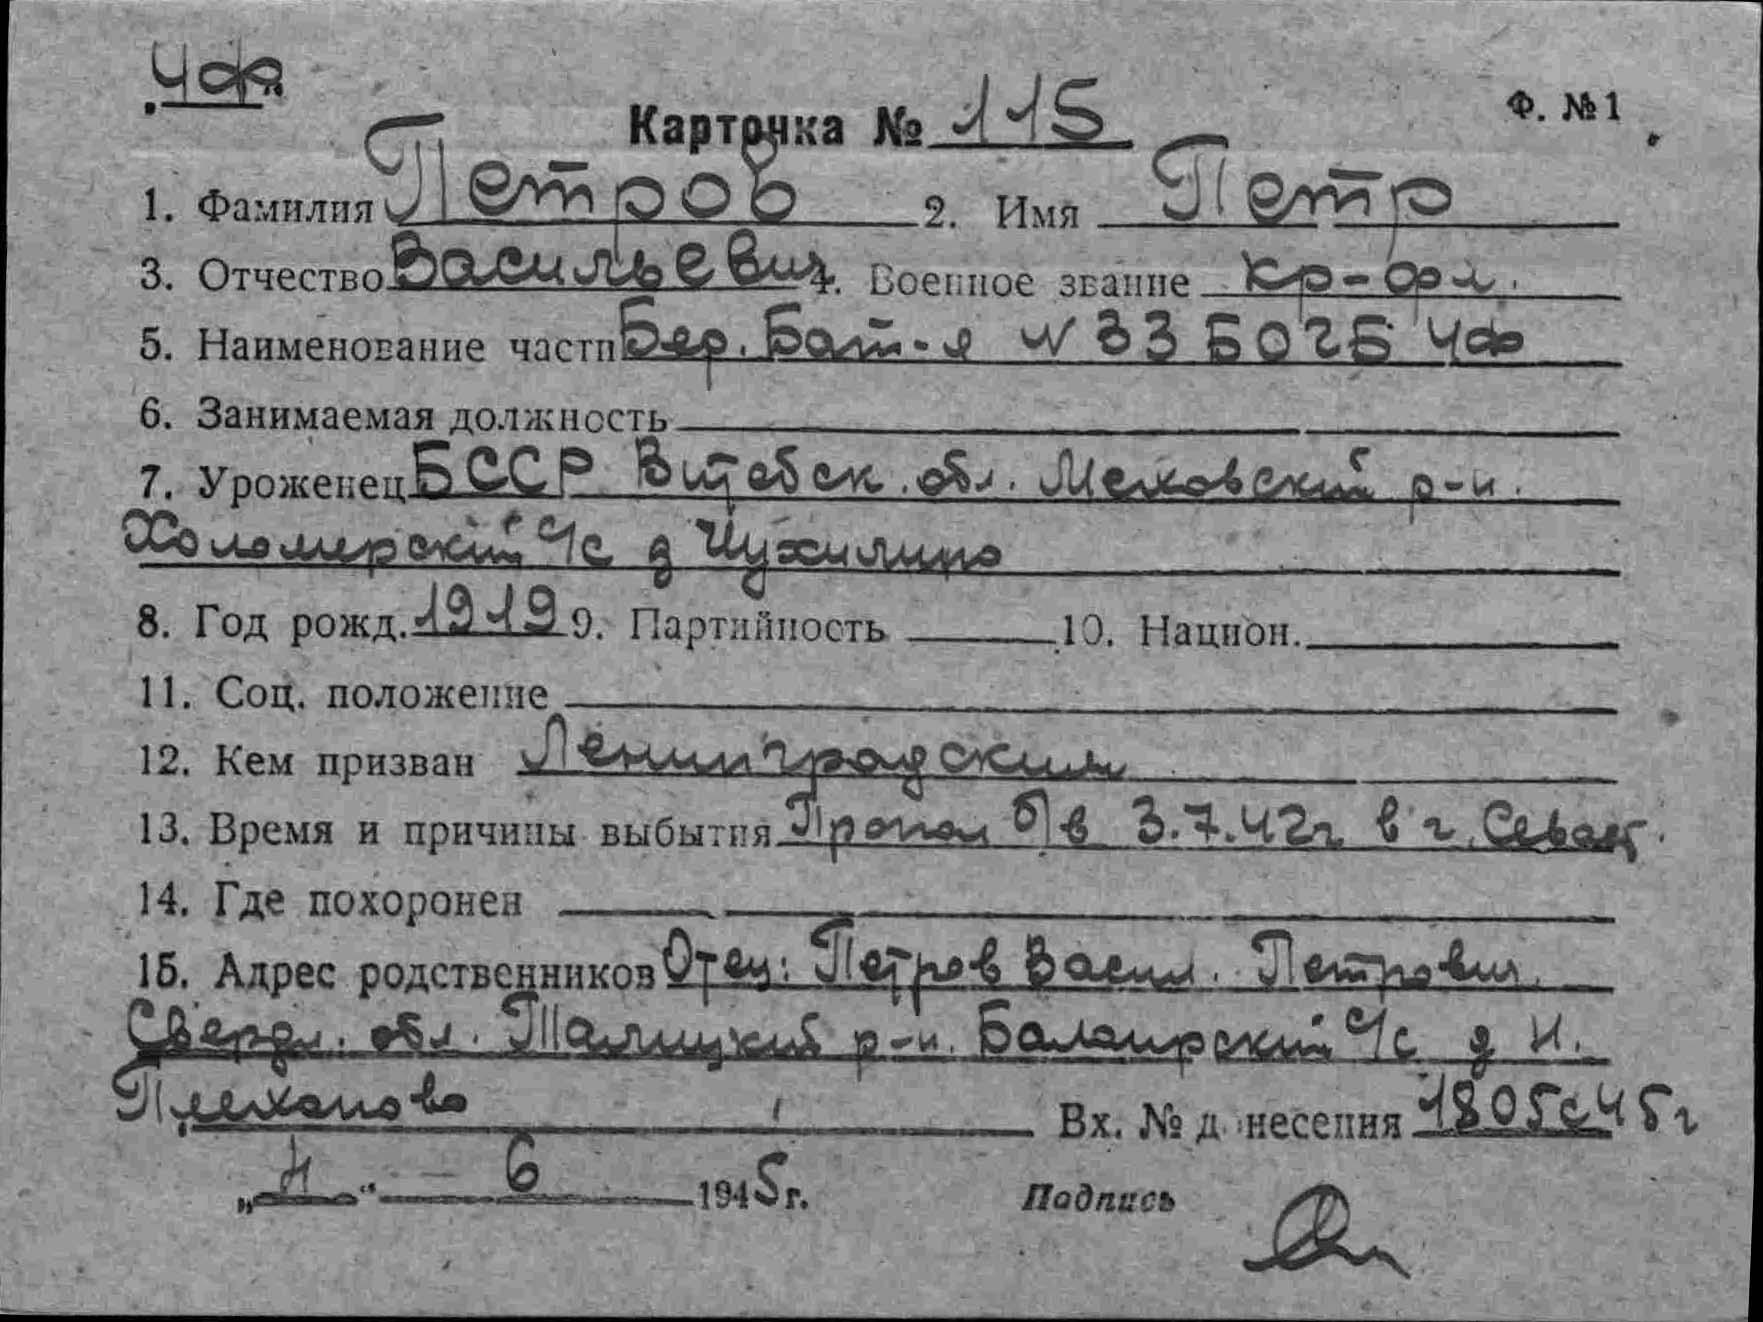 ЧФ
Карточка № 115 Ф. № 1
1. Фамилия Петров 2. Имя Петр
3. Отчество Васильевич 4. Военное звание кр-фл.
5. Наименование части Бер. Бат-я № 33 БО ГБ ЧФ
6. Занимаемая должность
7. Уроженец БССР Витебск. обл. Меховский р-н.
Холомерский с/с д Чухилино
8. Год рожд. 1919 9. Партийность 10. Национ.
11. Соц. положение
12. Кем призван Ленинградским
13. Время и причины выбытия Пропал б/в 3.7.42г в г. Севаст.
14. Где похоронен
15. Адрес родственников Отец: Петров Васил. Петрович.
Свердл. обл. Талицкий р-н. Балаирский с/с д Н.
Плеханово Вх. № д несения 1805с 45г
„4“ 6 1945 г. Подпись